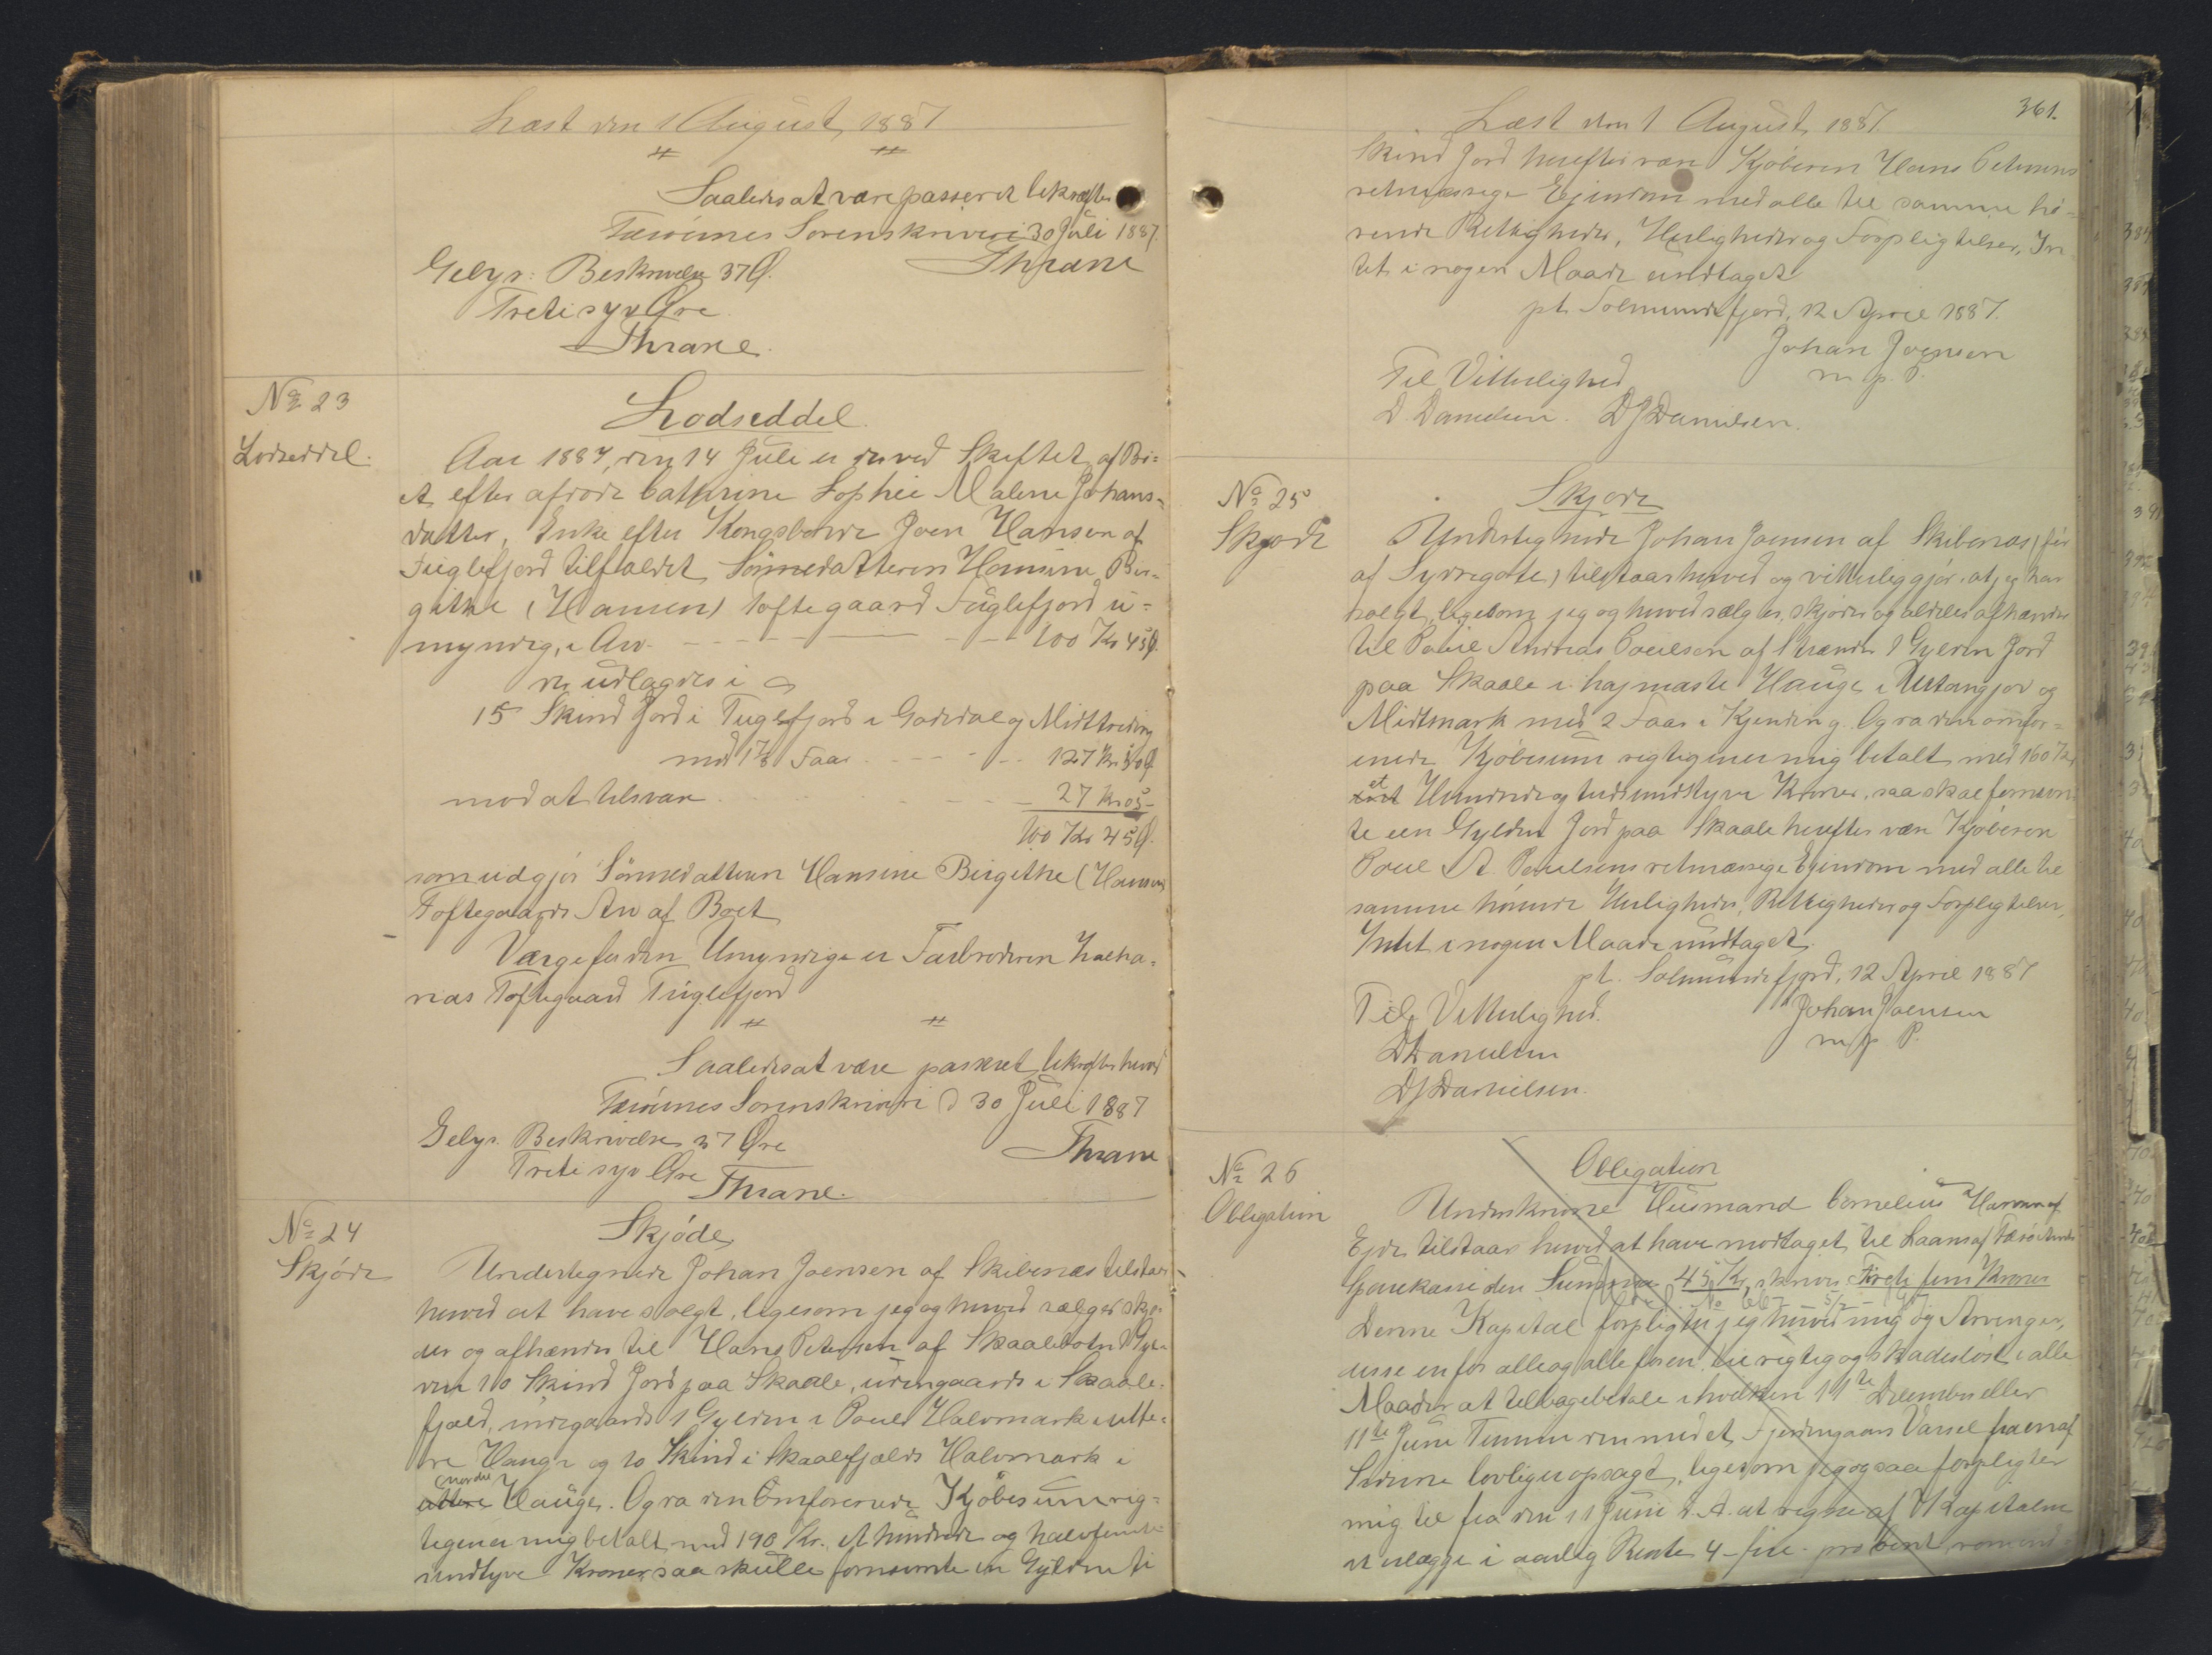 Læst den 1 August 1887
Saaledes at være passeret bekræftes
Færöernes Sorenskriveri 30 Juli 1887.
Gebyr: Beskrivelse 37 Ø. Thrane
Tretisyv Øre
Thrane.
No 23
Lodseddel.
Lodseddel.
Aar 1887, den 14 Juli er der ved Skiftet af Bo=
et efter afdöde Cathrine Sophie Malene Johans=
datter, Enke efter Kongsbonde Joen Hansen af
Fuglefjord tilfaldet Sönnedatteren Hansine Bir=
githe (Hansen) Toftegaard Fuglefjord u=
myndig, i Arv - - - - 100 Kr 45 Ø.
der udlagdes i
15 Skind Jord i Fuglefjord i Gadedal og Midttreding
med 1 7/8 Faar - - - - 127 Kr 50 Ø
mod at tilsvare - - - - 27 Kr 05 -
100 Kr 45 Ø.
som udgjör Sönnedatteren Hansine Birgithe (Hansen)
Toftegaards Arv af Boet
Værge for den Umyndige er Farbroderen Zacha=
rias Toftegaard Fuglefjord
Saaledes at være passeret bekræftes herved
Færöernes Sorenskriveri d 30 Juli 1887
Gebyr. Beskrivelse 37 Øre Thrane
Tretisyv Øre
Thrane.
No 24
Skjöde
Skjöde
Undertegnede Johan Joensen af Skibenæs tilstaar
herved at have solgt, ligesom jeg og herved sælger skjö=
der og afhænder til Hans Petersen af Skaalebotn 1 Gyl=
den 10 Skind Jord paa Skaale, udengaards i Skaale=
fjæld, indegaards 1 Gylden i Pouls Halvmark i utte=
re Hauge og 10 Skind i Skaalefjælds Halvmark i
nordre
uttere Hauge. Og da den Omforenede Kjöbesum rig=
tigen er mig betalt med 190 Kr., et hundrede og halvfemte=
sindtyve Kroner, saa skulle fornævnte en Gylden ti
361.
Læst den 1 August 1887.
Skind Jord herefter være Kjöberen Hans Petersens
retmæssige Ejendom med alle til samme hö=
rende Rettigheder, Herligheder og Forpligtelser, In=
tet i nogen Maade undtaget
pt. Solmundefjord, 12 April 1887.
Johan Joensen
m. p. P.
Til Vitterlighed
D Danielsen. DJDanielsen.
No 25
Skjöde
Skjöde
Undertegnede Johan Joensen af Skibenæs (för
af Sydregote) tilstaar herved og vitterliggjör, at jeg har
solgt, ligesom jeg og herved sælger, skjöder og aldeles afhænder
til Poul Andreas Poulsen af Strænder 1 Gylden Jord
paa Skaale i hajmaste Hauge i Utangjor og
Midtmark med 2 Faar i Kjending. Og da den omfor=
enede Kjöbesum rigtigen er mig betalt med 160 Kr
et
Hundrede og tredsindstyve Kroner, saa skal fornævn=
te een Gylden Jord paa Skaale herefter være Kjöberen
Poul A. Poulsens retmæssige Ejendom med alle til
samme hörende Herligheder, Rettigheder og Forpligtelser,
Intet i nogen Maade undtaget.
pt. Solmundefjord, 12 April 1887
Til Vitterlighed. Johan Joensen
DDanielsen m p P.
DJDanielsen.
No 26
Obligation
Obligation
Underskrevne Husmand Cornelius Hansen af
Ejde tilstaar herved at have modtaget til Laans af Færö Amts
Sparekasse den Summa 45 Kr, skriver Fireti fem Kroner
Denne Kapital forpligter jeg herved mig og Arvinger,
disse en for alle og alle for en til rigtig og skadeslöst i alle
Maader at tilbagebetale i hvilken 11te December eller
11te Juni Termin den med et Fjerdingaars Varsel fra en af
Siderne lovlig er opsagt, ligesom jeg ogsaa forpligter
mig til fra den 11 Juni d. A. at regne af Kapitalen
at erlægge i aarlig Rente 4 - fire - pro Cent